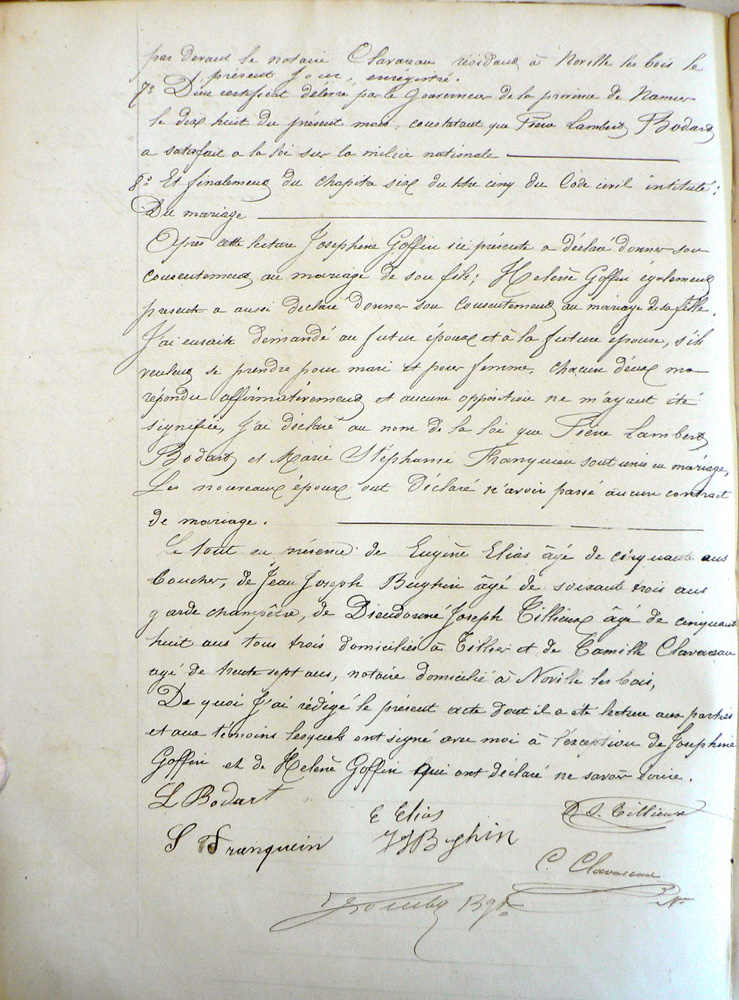 par devant le notaire Clavareau résidant à Noville les bois le
présent jour, enregistré.
7° D'un certificat délivré par le Gouverneur de la province de Namur
le dix huit du présent mois, constatant que Pierre Lambert Bodart
a satisfait a la loi sur la milice nationale
8° Et finalement du chapitre six du titre cinq du Code civil intitulé:
Du mariage
Après cette lecture Josephine Goffin ici présente a déclaré donner son
consentement au mariage de son fils; Helenè Goffin également
presente a aussi declaré donner son consentement au mariage de sa fille.
J'ai ensuite demandé au futur époux et à la future épouse, s'ils
veulent se prendre pour mari et pour femme, chacun d'eux m'a
répondu affirmativement et aucune opposition ne m'ayant été
signifiée, j'ai déclaré au nom de la loi que Pierre Lambert
Bodart et Marie Stéphanie Franquien sont unis en mariage,
Les nouveaux époux ont declaré n'avoir passé aucun contrat
de mariage.
Le tout en présence de Eugène Elias âgé de cinquante ans
boucher, de Jean Joseph Bughin âgé de soixante trois ans
garde champêtre, de Dieudonné Joseph Tillieux âgé de cinquante
huit ans tous trois domiciliés à Tillier et de Camille Clavareau
agé de trente sept ans, notaire domicilié à Noville les bois,
De quoi j'ai rédigé le présent acte dont il a été lecture aux parties
et aux témoins lesquels ont signé avec moi à l'exception de Josephine
Goffin et de Helenè Goffin qui ont déclaré ne savoir écrire.
L Bodart
E Elias
D. J. Tillieux
S Franquein
JJ Bughin
C. Clavareau
Nre
Bgtre